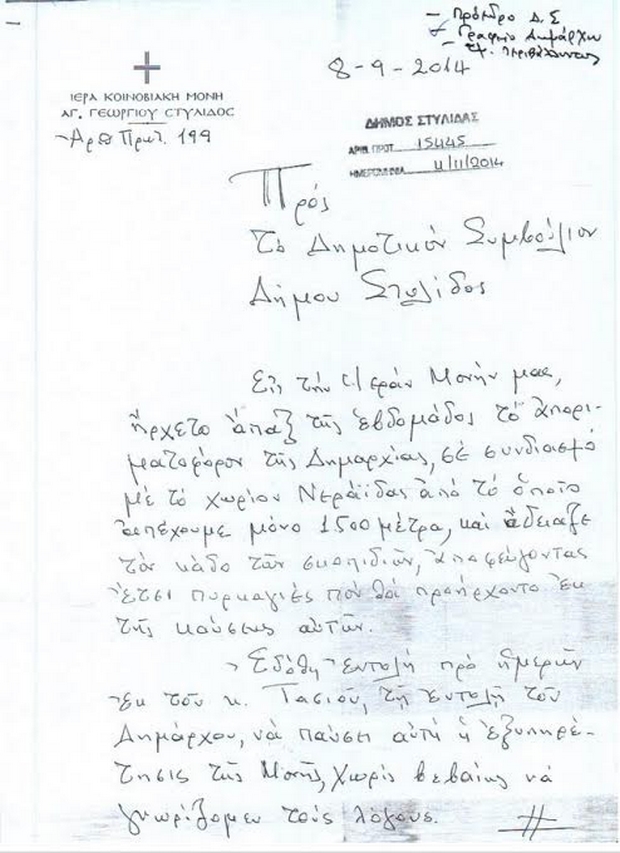 - Πρόεδρο Δ.Σ
- Γραφείο Δημάρχου
8-9-2014
ΙΕΡΑ ΚΟΙΝΟΒΙΑΚΗ ΜΟΝΗ
ΑΓ. ΓΕΩΡΓΙΟΥ ΣΤΥΛΙΔΟΣ
Αρθ Πρωτ. 199
ΔΗΜΟΣ ΣΤΥΛΙΔΑΣ
ΑΡΙΘ. ΠΡΩΤ. 15445
ΗΜΕΡΟΜΗΝΙΑ 4/11/2014
Πρός
Τό Δημοτικόν Συμβούλιον
Δήμου Στυλίδος
Εἰς τήν Ἱεράν Μονήν μας,
ἤρχετο ἅπαξ τῆς ἑβδομάδος τό ἀπορι-
ματοφόρον τῆς Δημαρχίας, σέ συνδιασμό
μέ τό χωρίον Νεράϊδας ἀπό τό ὁποῖο
ἀπέχουμε μόνο 1500 μέτρα, καί ἄδειαζε
τόν κάδο τῶν σκουπιδιῶν, ἀποφεύγοντας
ἔτσι πυρκαγιές πού θά προήρχοντο ἐκ
τῆς καύσεως αὐτῶν.
Ἐδόθη ἐντολή πρό ἡμερῶν
ἐκ τοῦ κ. Τασιοῦ, τῇ ἐντολῇ τοῦ
Δημάρχου, νά παύσει αὐτή ἡ ἐξυπηρέ-
τησις τῆς Μονῆς, χωρίς βεβαίως νά
γνωρίζομεν τούς λόγους.